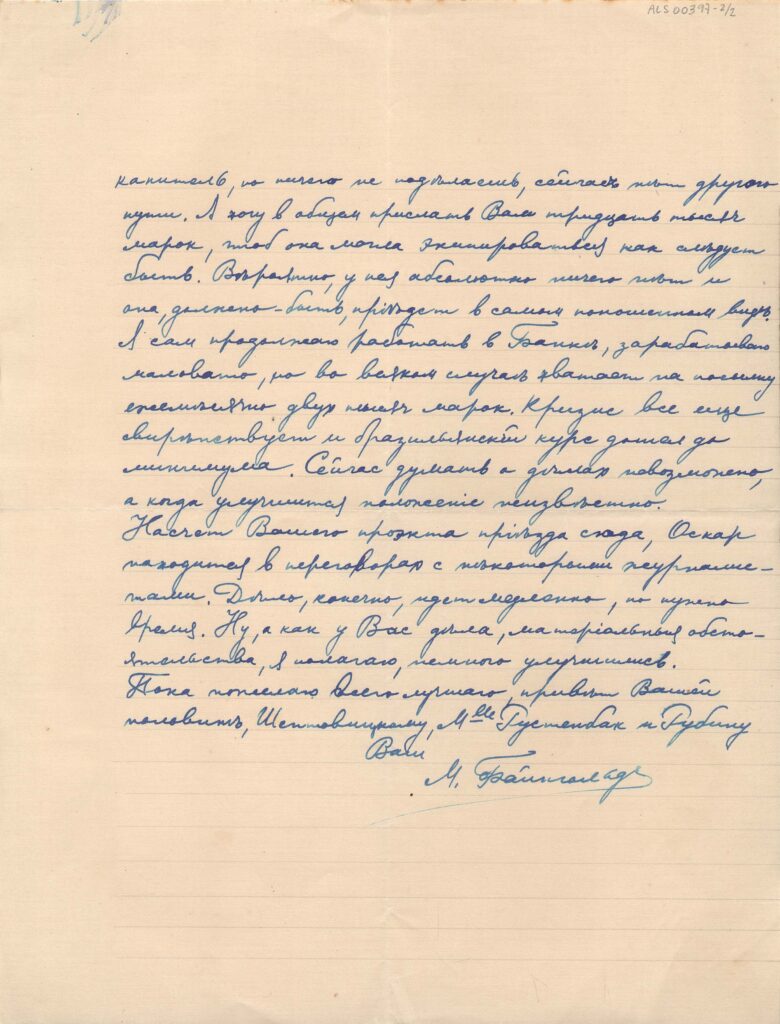 ALS 00397-2/2
канитель, но ничего не подѣлаешь, сейчасъ нѣт другого
пути. Я хочу в общем прислать Вам тридцать тысяч
марок, чтоб она могла экипироваться как слѣдует
быть. Вѣроятно, у нея абсолютно ничего нѣт и
она, должно-быть, пріѣдет в самом поношенном видѣ.
Я сам продолжаю работать в Банкѣ, зарабатываю
маловато, но во всяком случаѣ хватает на посылку
ежемѣсячно двух тысяч марок. Кризис все еще
свирѣпствует и бразильянскій курс дошел до
минимума. Сейчас думать о дѣлах невозможно,
а когда улучшится положеніе неизвѣстно.
Насчет Вашего проэкта пріѣзда сюда, Оскар
находится в переговорах с нѣкоторыми журналис-
тами. Дѣло, конечно, идет медленно, но нужно
время. Ну, а как у Вас дѣла, матеріальныя обсто-
ятельства, я полагаю, немного улучшились.
Пока пожелаю всего лучшаго, привѣт Вашей
половинѣ, Шептовицкому, Mlle Густенбак и Рубину
Ваш
М. Байнгольдъ